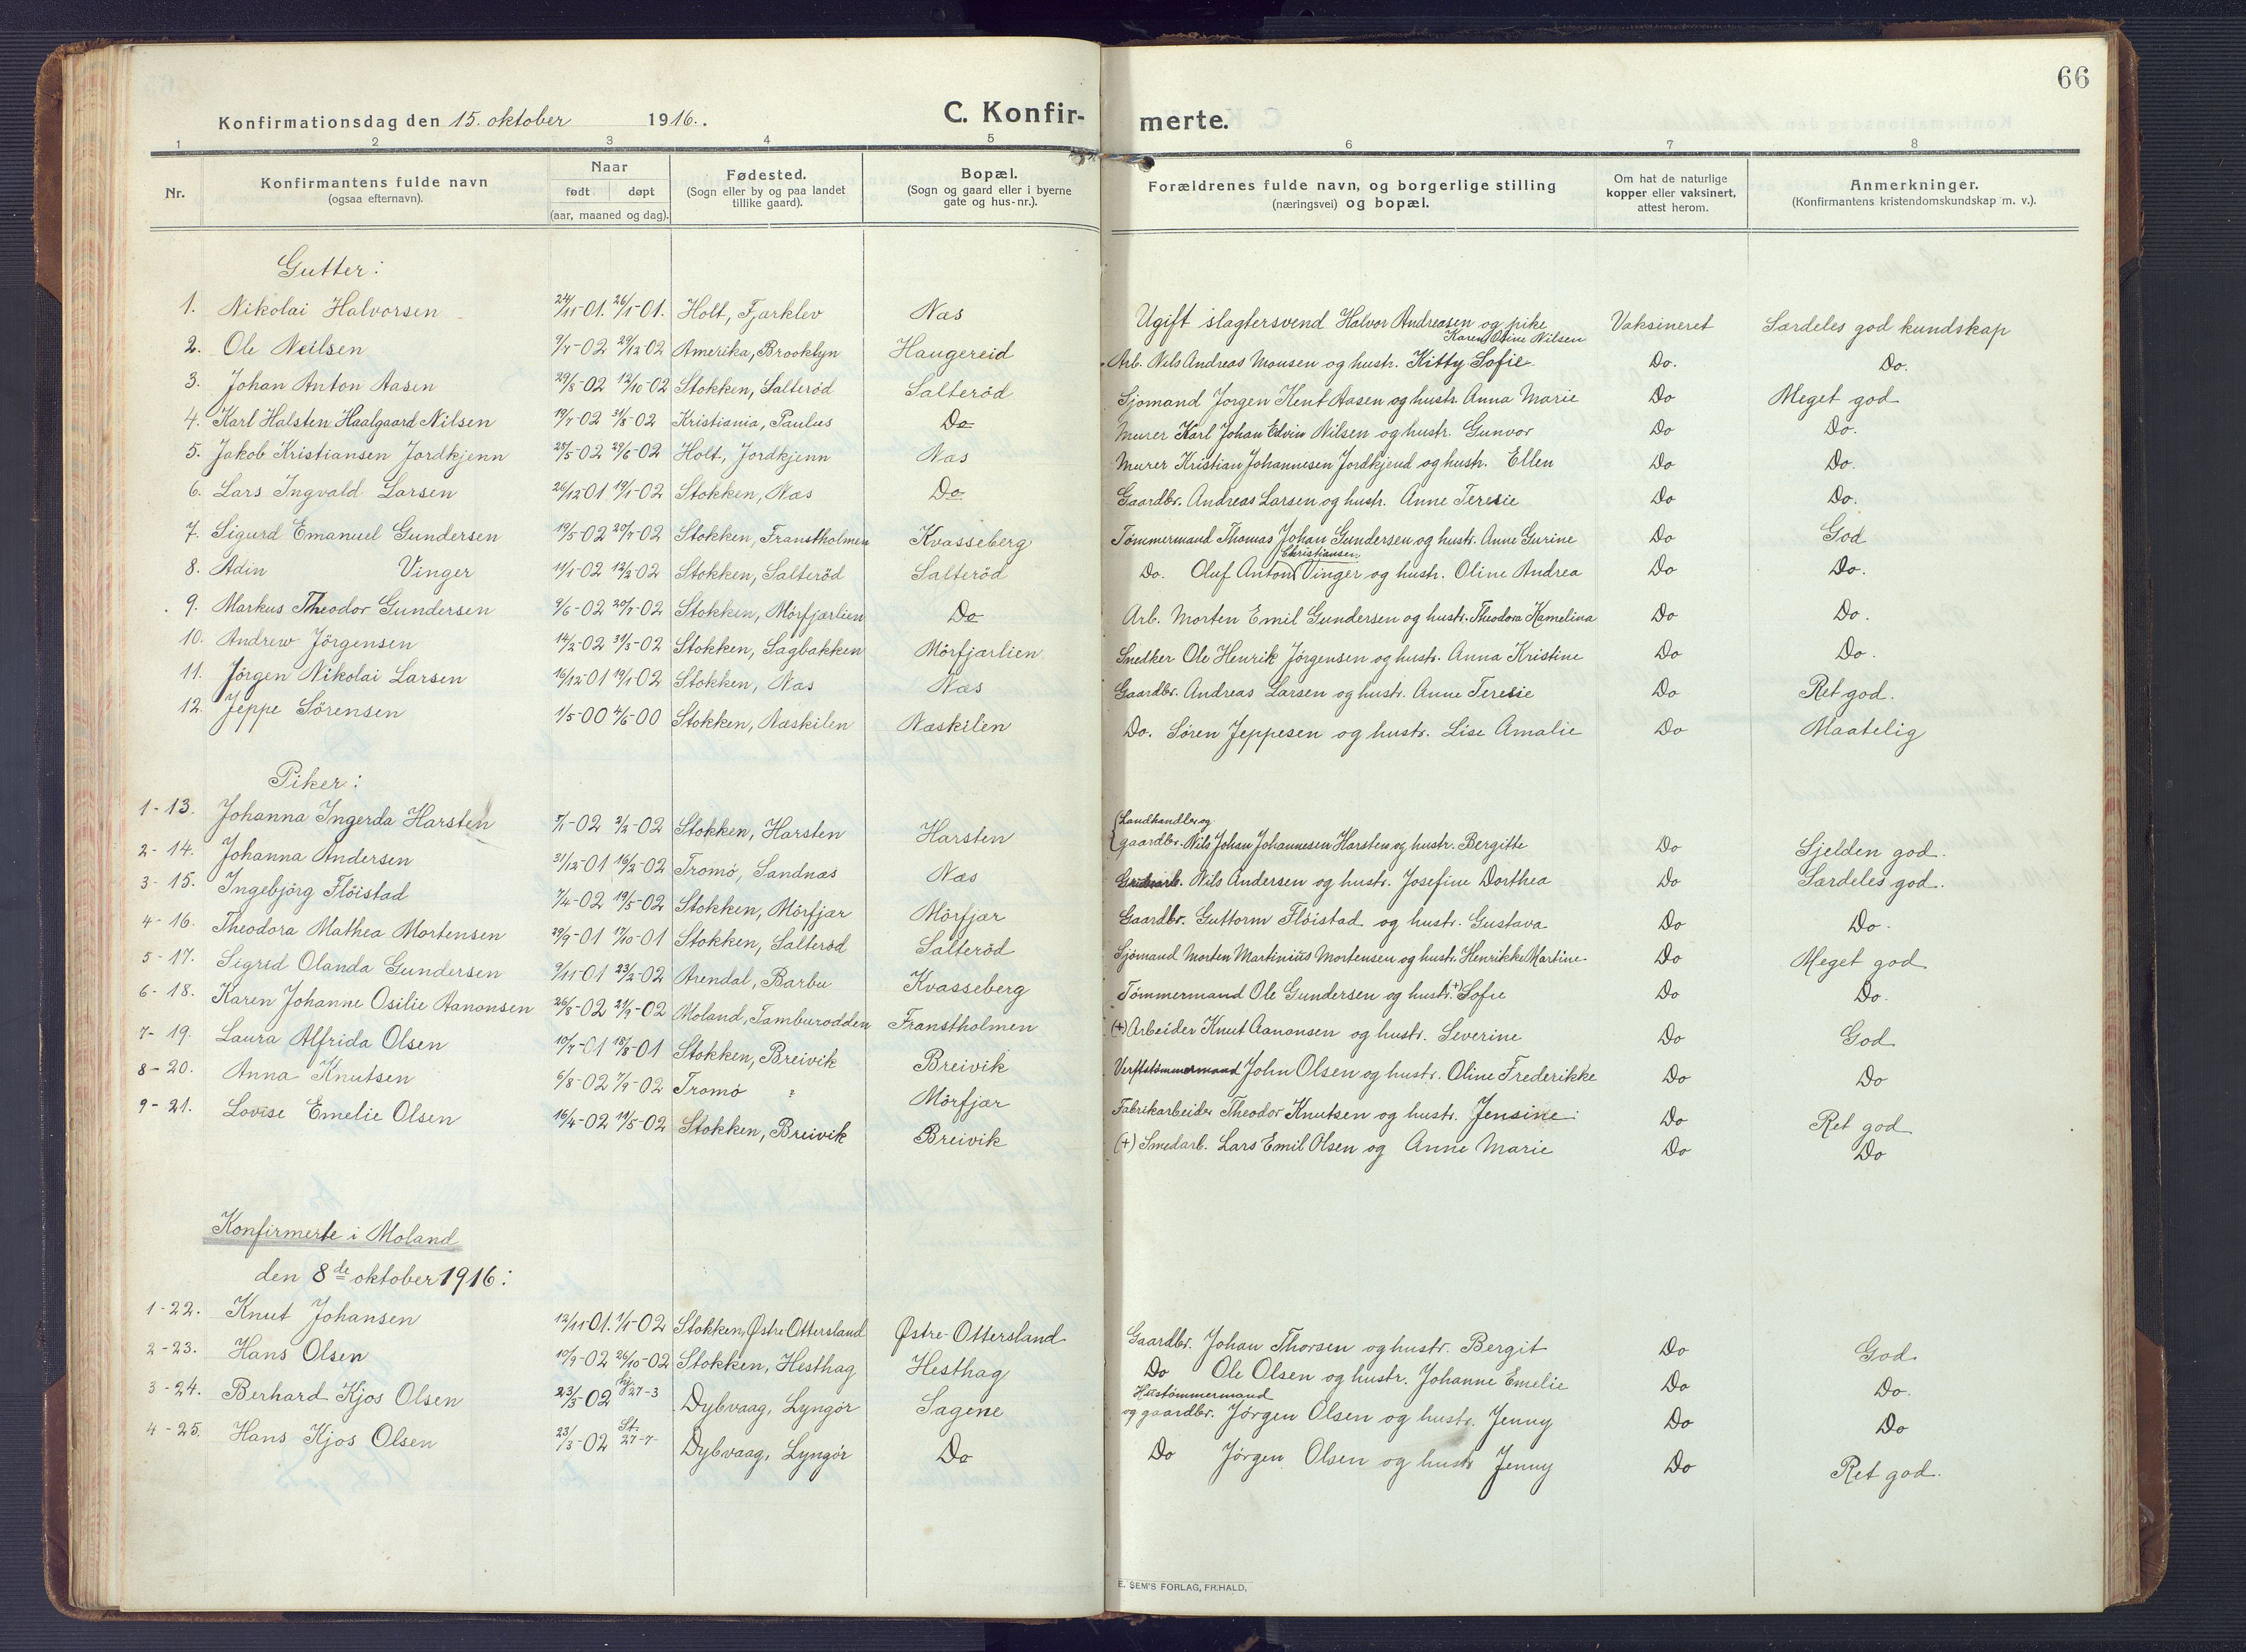 66
Konfirmationsdag den 15. oktober 1916.
C. Konfirmerte.
1 2 3 4 5 6 7 8
Nr.
Konfirmantens fulde navn
(ogsaa efternavn).
Naar
født døpt
(aar, maaned og dag).
Fødested.
(Sogn eller by og paa landet
tillike gaard).
Bopæl.
(Sogn og gaard eller i byerne
gate og hus-nr.).
Forældrenes fulde navn, og borgerlige stilling
(næringsvei) og bopæl.
Om hat de naturlige
kopper eller vaksinert,
attest herom.
Anmerkninger.
(Konfirmantens kristendomskundskap m. v.).
Gutter:
1. Nikolai Halvorsen 26/1-01. Holt, Fjærklev Næs Ugift slagtersvend Halvor Andreasen og pike Karen Oline Nilsen Vaksineret Særdeles god kundskap
2. Ole Neilsen 29/12 02 Amerika, Brooklyn Haugereid Arb. Nils Andreas Monsen og hustr. Kitty Sofie Do. Do.
3. Johan Anton Aasen 29/8-02 12/10-02 Stokken, Salterød Salterød Sjømand Jørgen Kent Aasen og hustr. Anna Marie Do Meget god
4. Karl Halsten Haalgaard Nilsen 19/7-02 31/8-02 Kristiania, Paulus Do Murer Karl Johan Edvin Nilsen og hustr. Gunvor Do Do.
5. Jakob Kristiansen Jordkjenn 28/5-02 29/6-02 Holt, Jordkjenn Næs Murer Kristian Johannesen Jordkjend og hustr. Ellen Do Do.
6. Lars Ingvald Larsen 26/12-01 19/1-02 Stokken, Næs Do Gaardbr. Andreas Larsen og hustr. Anne Teresie Do Do.
7. Sigurd Emanuel Gundersen 19/5-02 20/7-02 Stokken, Franstholmen Kvasseberg Tømmermand Thomas Johan Gundersen og hustr. Anne Gurine Do God
8. Adin Vinger 11/1-02 12/2-02 Stokken, Salterød Salterød Do. Oluf Anton Christiansen Vinger og hustr. Oline Andrea Do Do.
9. Markus Theodor Gundersen 9/6-02 20/7-02 Stokken, Mörfjærlien Do Arb. Morten Emil Gundersen og hustr. Theodora Kamelina Do Do.
10. Andrew Jörgensen 14/2-02 31/3-02 Stokken, Sagbakken Mörfjærlien Snedker Ole Henrik Jörgensen og hustr. Anna Kristine Do Do.
11. Jörgen Nikolai Larsen 16/12-01 19/1-02 Stokken, Næs Næs Gaardbr. Andreas Larsen og hustr. Anne Teresie Do Ret god.
12. Jeppe Sörensen 1/5-00 4/6-00 Stokken, Næskilen Næskilen Do. Sören Jeppesen og hustr. Lise Amalie Do Maatelig
Piker:
1-13. Johanna Ingerda Harsten 2/2-02 Stokken, Harsten Harsten Landhandler og gaardbr. Nils Johan Johannesen Harsten og hustr. Bergitte Do Sjelden god.
2-14. Johanna Andersen 31/12-01 16/2-02 Tromø, Sandnæs Næs Nils Andersen og hustr. Josefine Dorthea Do Særdeles god.
3-15. Ingebjörg Flöistad 7/4-02 19/5-02 Stokken, Mörfjær Mörfjær Gaardbr. Guttorm Flöistad og hustr. Gustava Do Do.
4-16. Theodora Mathea Mortensen 29/9-01 Stokken, Salteröd Salteröd Sjömand Morten Martinius Mortensen og hustr. Henrikke Martine Do Meget god
5-17. Sigrid Olanda Gundersen 9/11-01 23/2-02 Arendal, Barbu Kvasseberg Tömmermand Ole Gundersen og hustr.(+) Sofie Do Do.
6-18. Karen Johanne Osilie Aanonsen 26/8-02 21/9-02 Moland, Tamburodden Franstholmen (+) Arbeider Knut Aanonsen og hustr. Severine Do God
7-19. Laura Alfrida Olsen 10/7-01 18/8-01 Stokken, Breivik Breivik Verftstömmermand John Olsen og hustr. Oline Frederikke Do Do
8-20. Anna Knutsen 6/8-02 7/9-02 Tromø ? Mörfjær Fabrikarbeider Theodor Knutsen og hustr. Jensine Do Ret god
9-21. Lovise Emelie Olsen 16/4-02 11/5-02 Stokken, Breivik Breivik (+) Smedarb. Lars Emil Olsen og Anne Marie Do Do
Konfirmerte i Moland
den 8de oktober 1916:
1-22. Knut Johansen 12/11-01. 1/1-02 Stokken, Østre Ottersland Østre Ottersland Gaardbr. Johan Thorsen og hustr. Bergit Do God
2-23. Hans Olsen 10/9-02 26/10-02 Stokken, Hesthag Hesthag Do Ole Olsen og hustr. Johanne Emelie Do Do.
3-24. Berhard Kjos Olsen 23/3-02 hj. 27-3 Dybvaag, Lyngör Sagene Hustömmermand og gaardbr. Jörgen Olsen og hustr. Jenny Do Do
4-25. Hans Kjos Olsen 23/3-02 St. 27-7 Dybvaag, Lyngör Do Do Jörgen Olsen og hustr Jenny Do Ret god.
E. SEM'S FORLAG, FR.HALD.